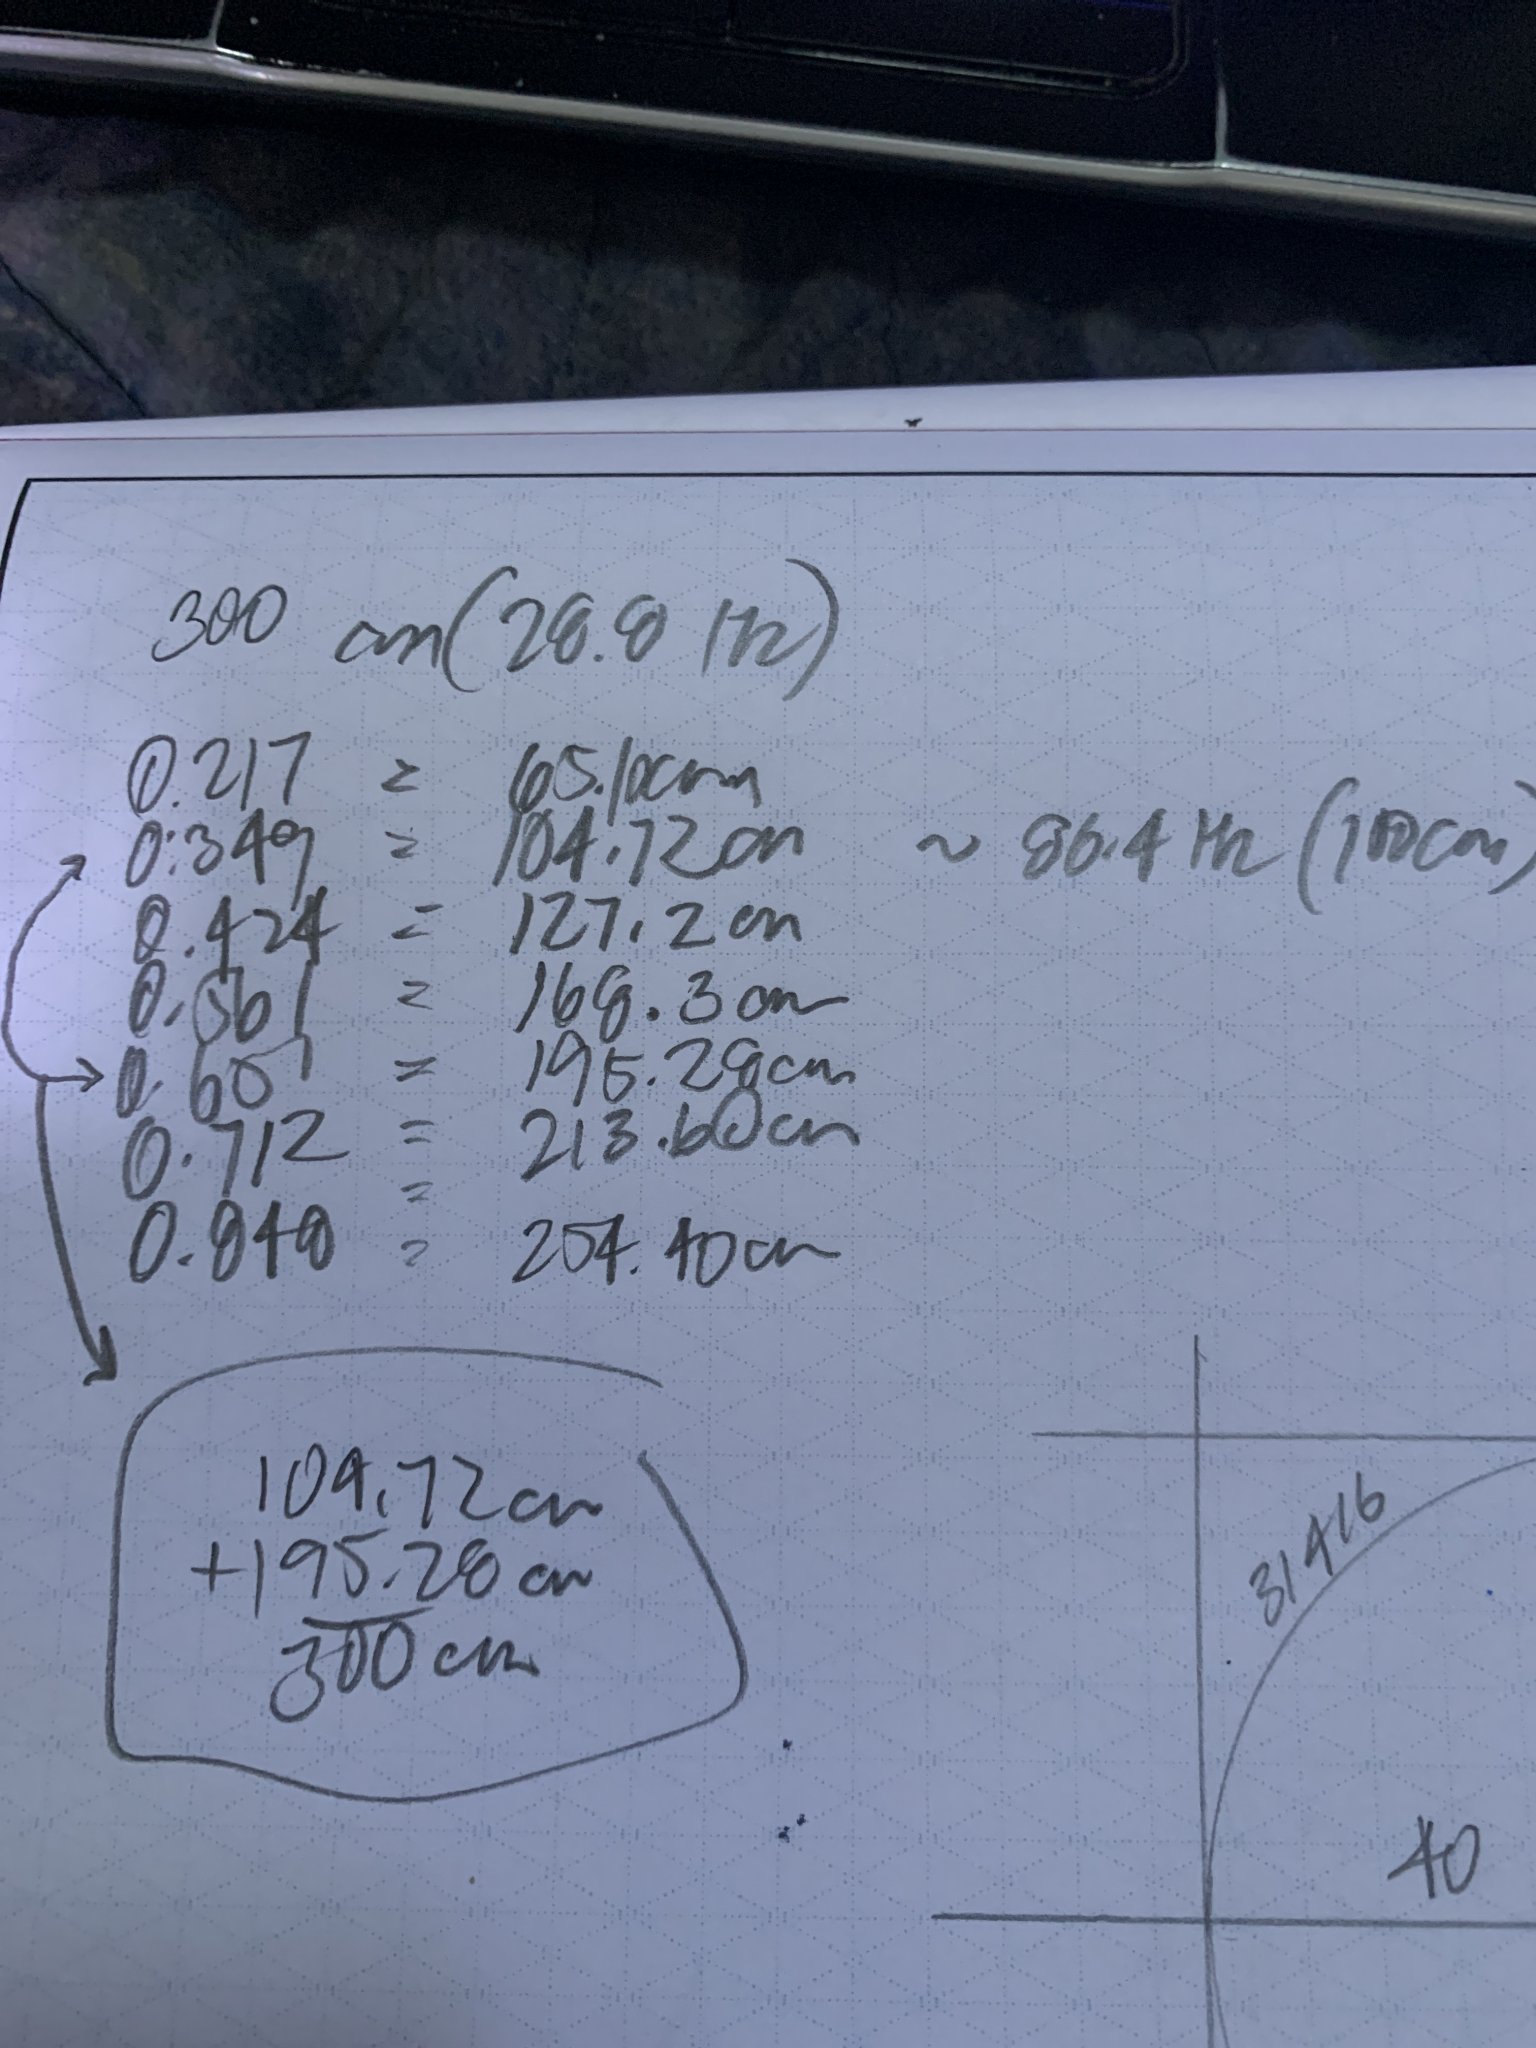 300 cm (28.8 Hz)
0.217 = 65.10cm
0.349 = 104.72cm ~ 86.4 Hz (100cm)
0.424 = 127.2cm
0.561 = 168.3cm
0.651 = 195.28cm
0.712 = 213.60cm
=
0.848 = 254.40cm
104.72cm
+195.28cm
300cm
31416
40